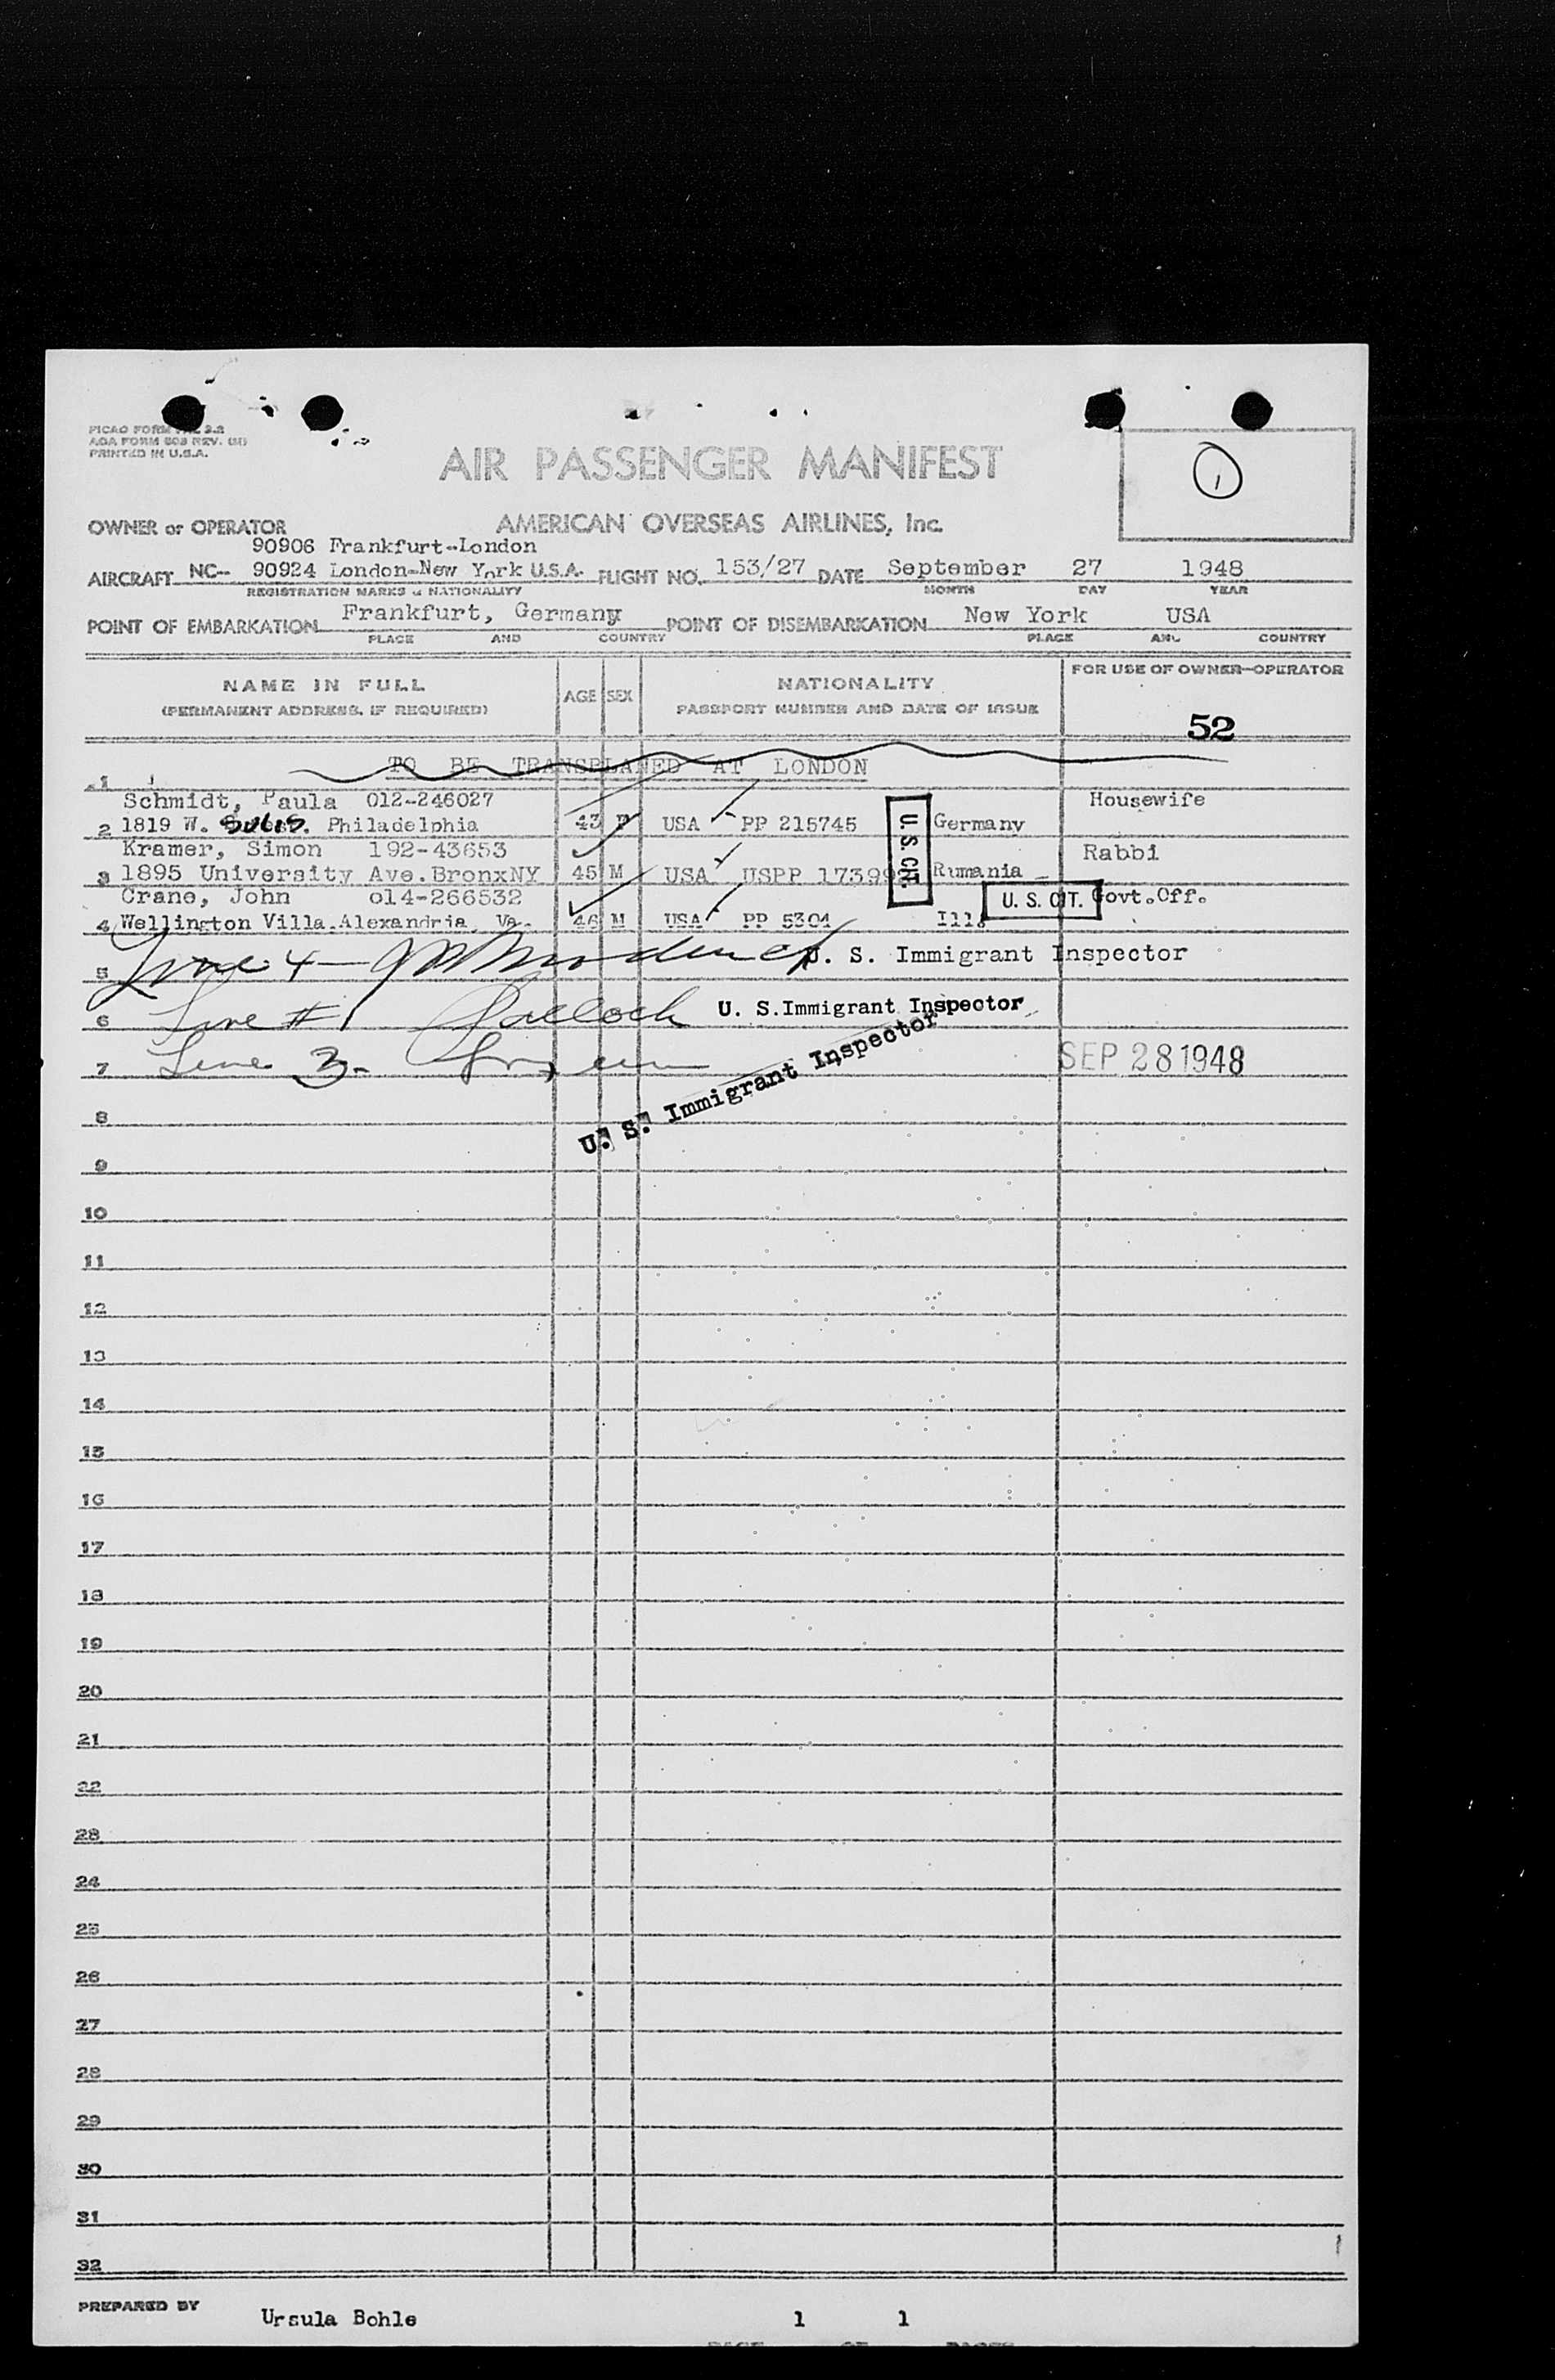 PICAO FORM 3.2
AOA FORM 808 REV.
PRINTED IN U.S.A.
AIR PASSENGER MANIFEST
1
OWNER or OPERATOR AMERICAN OVERSEAS AIRLINES, Inc.
90906 Frankfurt-London
AIRCRAFT NC-- 90924 London-New York U.S.A. FLIGHT NO. 153/27 DATE September 27 1948
REGISTRATION MARKS & NATIONALITY MONTH DAY YEAR
POINT OF EMBARKATION Frankfurt, Germany POINT OF DISEMBARKATION New York USA
PLACE AND COUNTRY PLACE AND COUNTRY
NAME IN FULL AGE SEX NATIONALITY FOR USE OF OWNER-OPERATOR
(PERMANENT ADDRESS, IF REQUIRED) PASSPORT NUMBER AND DATE OF ISSUE
52
TO BE TRANSPLANED AT LONDON
1
Schmidt, Paula 012-246027 Housewife
2 1819 W. Philadelphia 43 F USA PP 215745 U.S. CIT. Germany
Kramer, Simon 192-43653 Rabbi
3 1895 University Ave.BronxNY 45 M USA USPP 17399 Rumania
Crane, John o14-266532 U.S. CIT. Govt.Off.
4 Wellington Villa.Alexandria, Va. 46 M USA PP 5304 Ill.
5 Line 4 — U. S. Immigrant Inspector
6 Line # 1 U. S. Immigrant Inspector
7 Line 3- U. S. Immigrant Inspector SEP 28 1948
8
9
10
11
12
13
14
15
16
17
18
19
20
21
22
23
24
25
26
27
28
29
30
31
32
PREPARED BY Ursula Bohle 1 1
PAGE OF PAGES